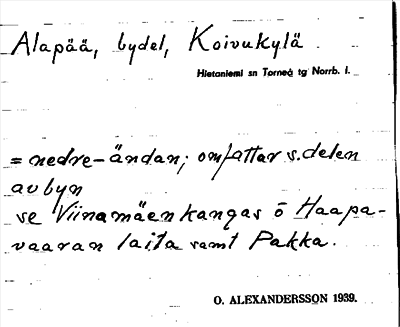 Alapää, bydel, Koivukylä
Hietaniemi sn Torneå tg Norrb. l.
= nedre-ändan; omfattar s.delen
av byn
se Viinamäenkangas ö Haapa-
vaaran laita samt Pakka.
O. ALEXANDERSSON 1939.